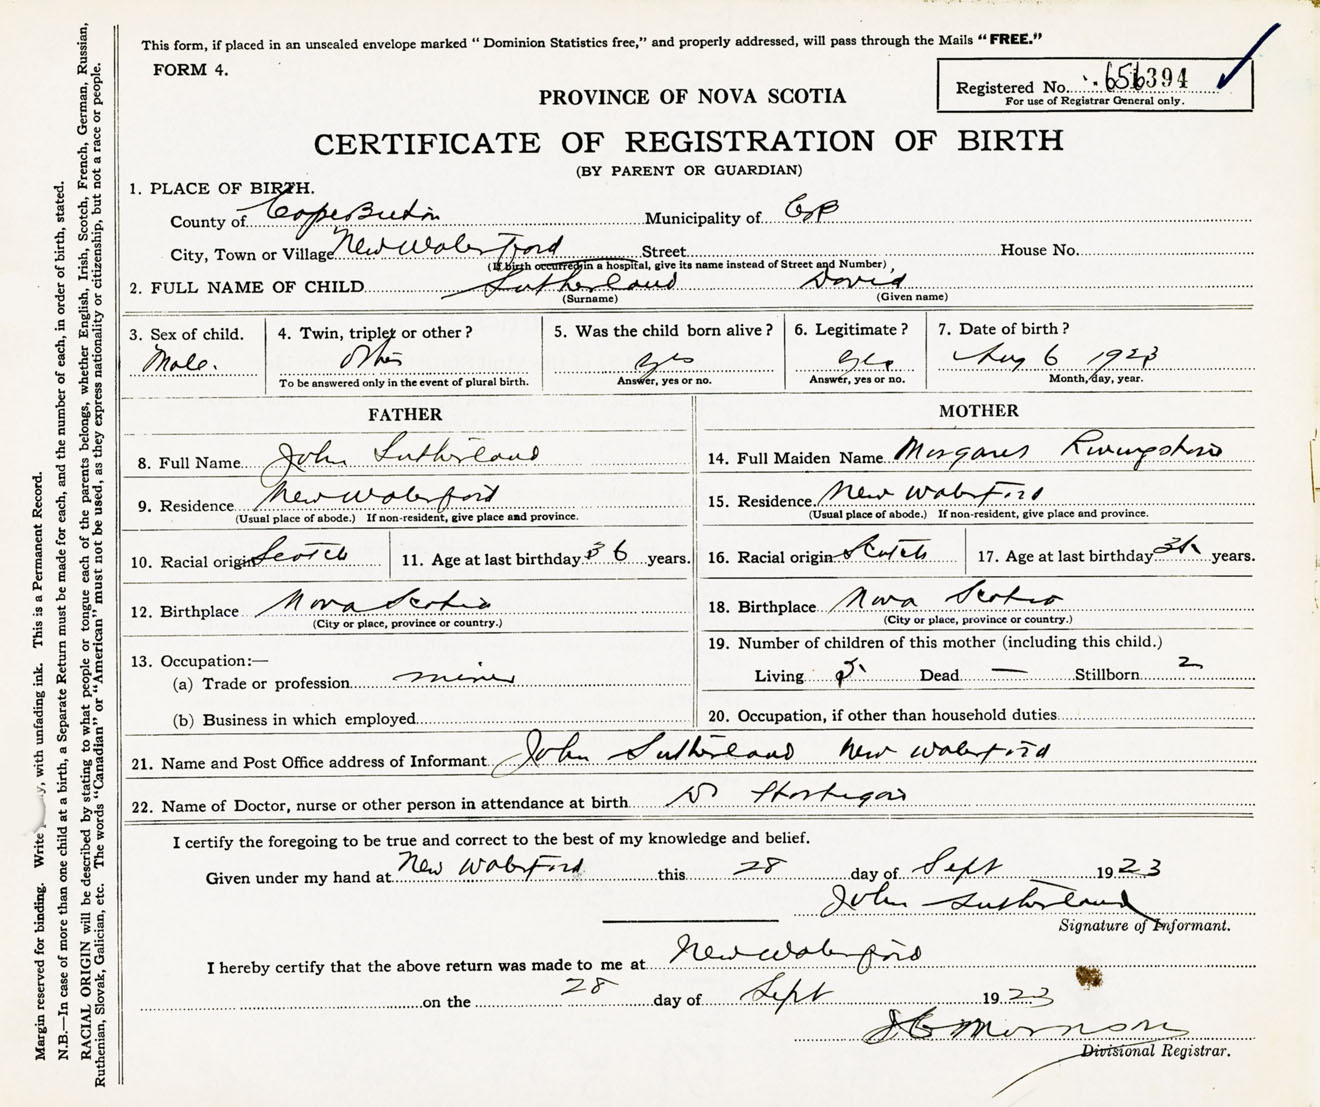 This form, if placed in an unsealed envelope marked “ Dominion Statistics free,” and properly addressed, will pass through the Mails “ FREE.”
FORM 4.
Registered No. 656394
For use of Registrar General only.
PROVINCE OF NOVA SCOTIA
CERTIFICATE OF REGISTRATION OF BIRTH
(BY PARENT OR GUARDIAN)
1. PLACE OF BIRTH.
County of Cape Breton Municipality of C B
City, Town or Village New Waterford Street House No.
(If birth occurred in a hospital, give its name instead of Street and Number)
2. FULL NAME OF CHILD Sutherland David
(Surname) (Given name)
3. Sex of child. 4. Twin, triplet or other ? 5. Was the child born alive ? 6. Legitimate ? 7. Date of birth ?
Male. Other yes yes Aug 6 1923
To be answered only in the event of plural birth. Answer, yes or no. Answer, yes or no. Month, day, year.
FATHER
8. Full Name John Sutherland
9. Residence New Waterford
(Usual place of abode.) If non-resident, give place and province.
10. Racial origin Scotch 11. Age at last birthday 36 years.
12. Birthplace Nova Scotia
(City or place, province or country.)
13. Occupation:—
(a) Trade or profession miner
(b) Business in which employed
MOTHER
14. Full Maiden Name Margaret Livingstone
15. Residence New Waterford
(Usual place of abode.) If non-resident, give place and province.
16. Racial origin Scotch 17. Age at last birthday years.
18. Birthplace Nova Scotia
(City or place, province or country.)
19. Number of children of this mother (including this child.)
Living 5. Dead — Stillborn 2
20. Occupation, if other than household duties
21. Name and Post Office address of Informant John Sutherland New Waterford
22. Name of Doctor, nurse or other person in attendance at birth Dr
I certify the foregoing to be true and correct to the best of my knowledge and belief.
Given under my hand at New Waterford this 28 day of Sept 1923
John Sutherland
Signature of Informant.
I hereby certify that the above return was made to me at New Waterford
on the 28 day of Sept 1923
Morrison
Divisional Registrar.
Margin reserved for binding. Write with unfading ink. This is a Permanent Record.
N.B.—In case of more than one child at a birth, a Separate Return must be made for each, and the number of each, in order of birth, stated.
RACIAL ORIGIN will be described by stating to what people or tongue each of the parents belongs, whether English, Irish, Scotch, French, German, Russian,
Ruthenian, Slovak, Galician, etc. The words “Canadian” or “American” must not be used, as they express nationality or citizenship, but not a race or people.